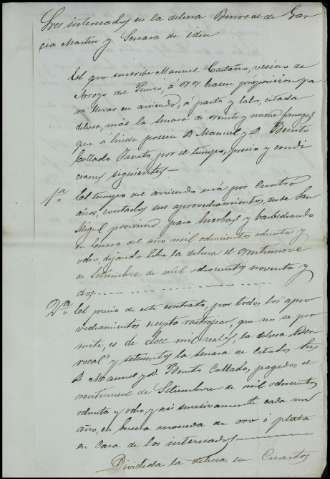 Sres. interesados en la dehesa Berrocal de Gar
cia Martin y Senara de
El que suscribe Manuel Castaño, vecino de
Arroyo del Puerco, á VV. hace proposicion pa
ra llevar en arriendo, á pasto y labor, citada
dehesa, más la senara de veinte y nueve fanegas
que á linde poseen D. Manuel y D. Benito
Collado por el tiempo, precio y condi
ciones siguientes—
1ª El tiempo de arriendo será por cuatro
años, contados sus aprovechamientos, desde San
Miguel proximo para hierbas y
en Enero del año mil ochocientos ochenta y
ocho, dejando libre la dehesa el
de Setiembre de mil ochocientos noventa y
dos
2ª El precio de este contrato, por todos los apro
vechamientos, que no se per
mite, es de doce mil reales, la dehesa Ber
rocal y la senara de citados
D. Manuel y D. Benito Collado, pagados el
veintinueve de Setiembre de mil ochocientos
ochenta y ocho, y así sucesivamente cada un
año, en buena moneda de oro ó plata
en casa de los interesados
Dividida la dehesa en Cuartos